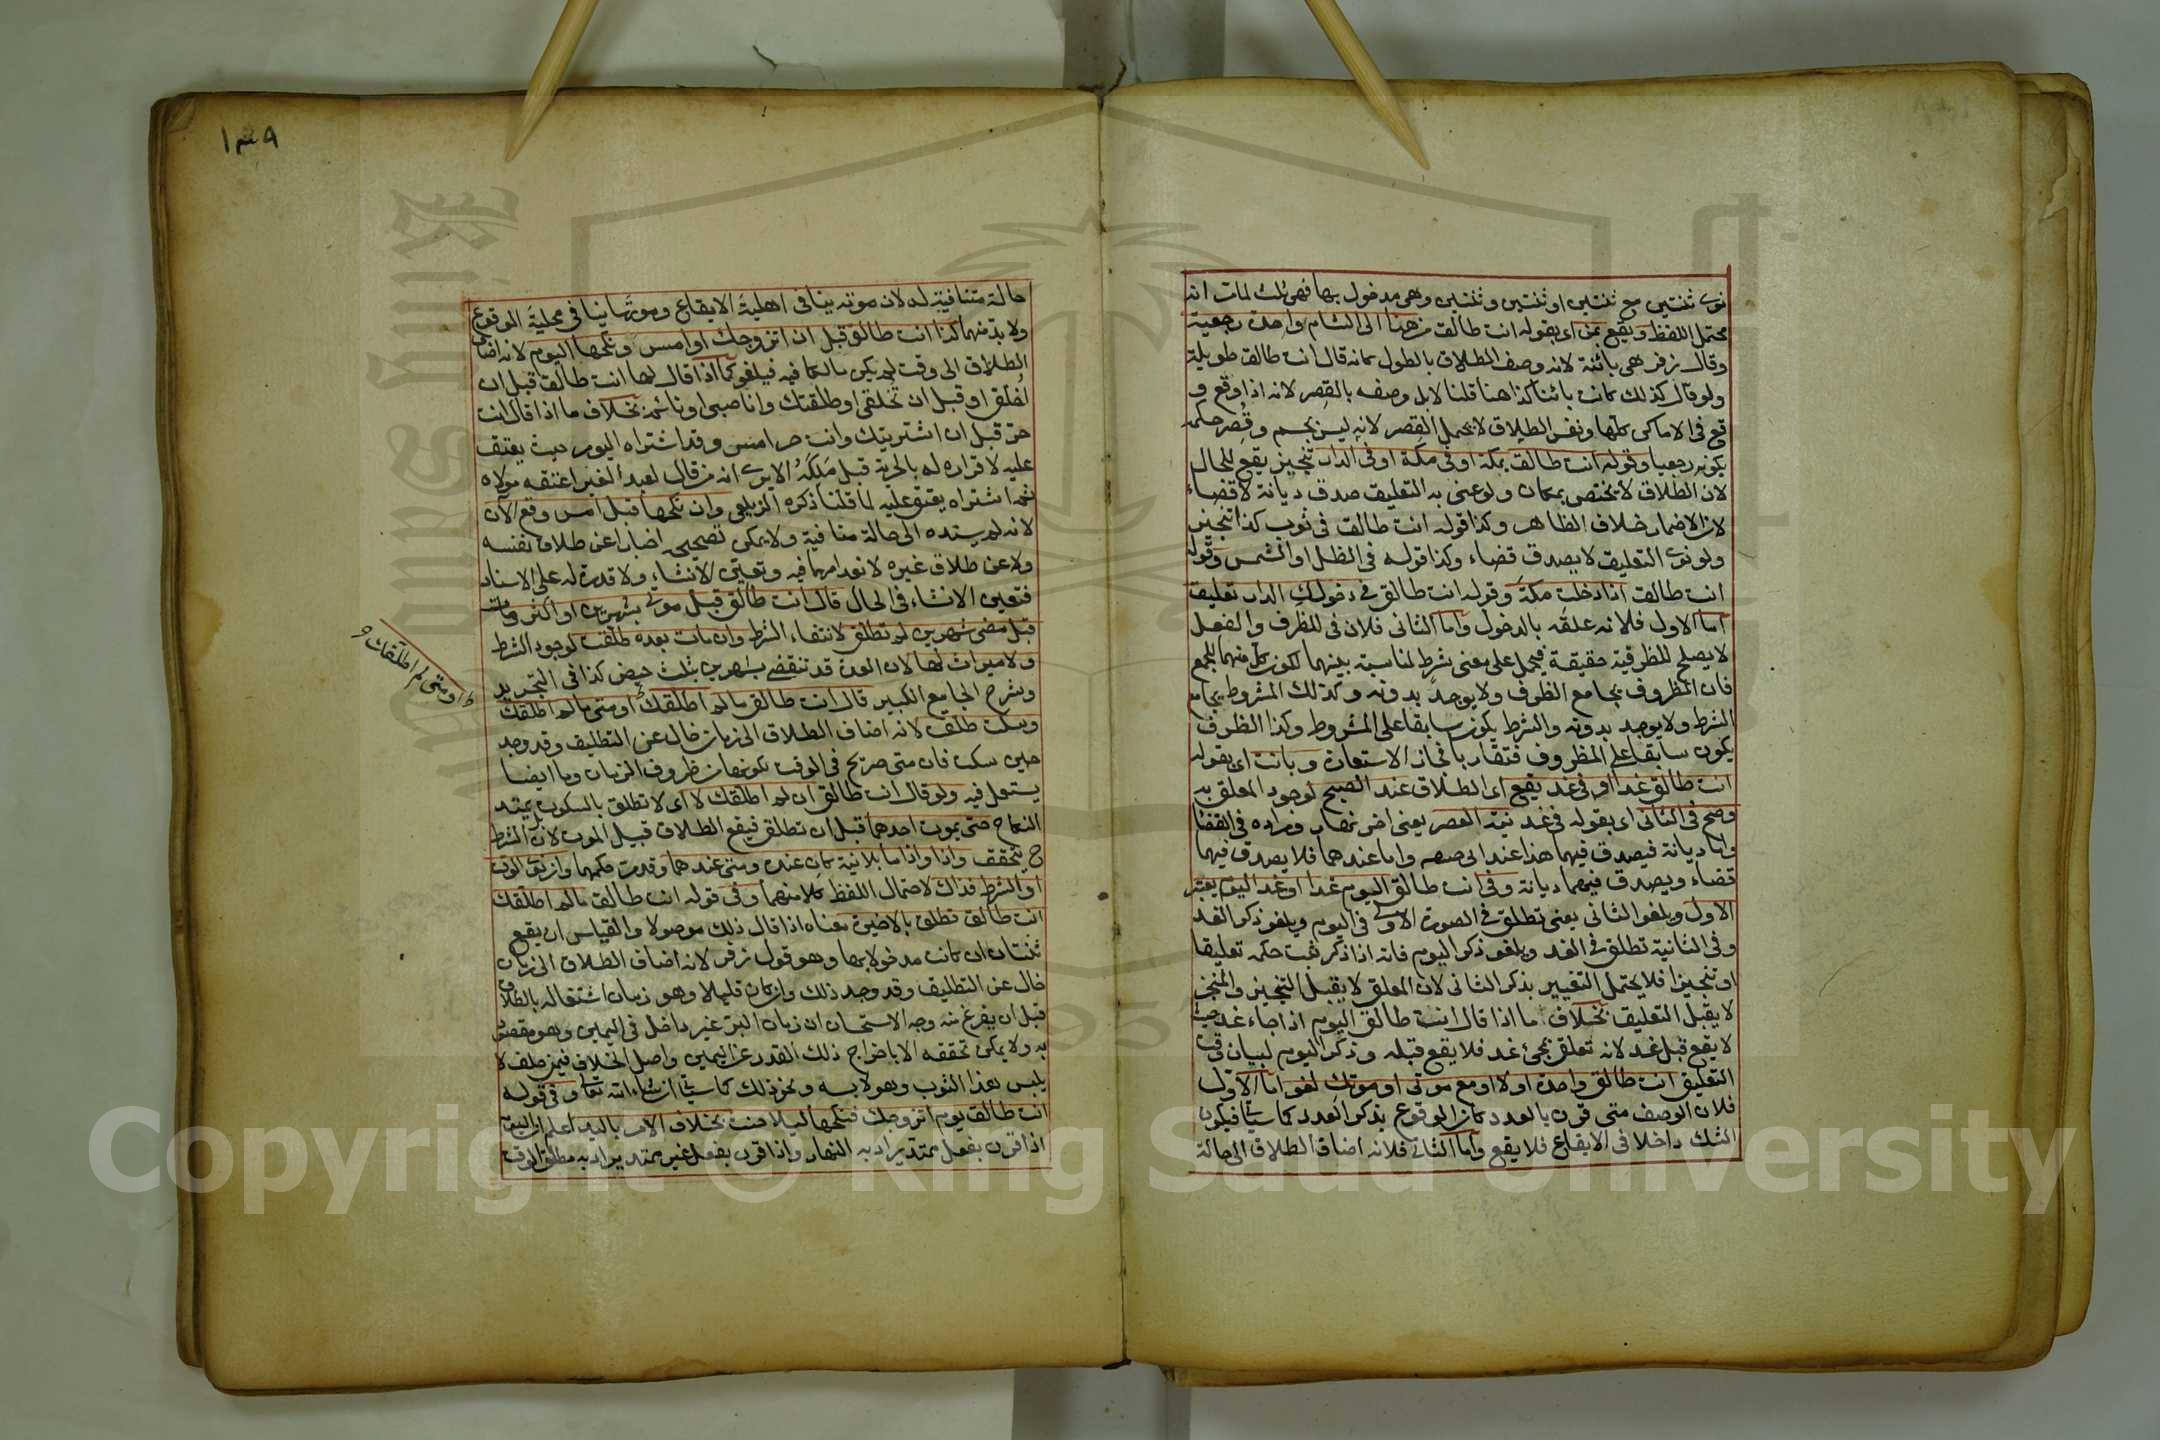 نوى ثنتين مع ثنتين او ثنتين وثنتين وهى مدخول بها فهى ثلث لمات انه
محتمل اللفظ ويقع بمن اى بقوله انت طالق من هنا الى الشام واحدة رجعية
وقال زفر هى بائنة لانه وصف الطلاق بالطول كانه قال انت طالق طويلة
ولو قال كذلك كانت بائنا كذا هنا قلنا لا بل وصفه بالقصر لانه اذا وقع و
قع فى الاماكن كلها ونفس الطلاق لا يحتمل القصر لانه ليس بجسم وقصر حكمه
بكونه رجعيا وقوله انت طالق بمكة او فى مكة او فى الدار تنجيز يقع للحال
لان الطلاق لا يختص بمكان ولو عنى به التعليق صدق ديانة لا قضاء
لان الاضمار خلاف الظاهر وكذا قوله انت طالق فى ثوب كذا تنجيز
ولو نوى التعليق لا يصدق قضاء وكذا قوله فى الظل او الشمس وقوله
انت طالق اذا دخلت مكة وقوله انت طالق فى دخولك الدار تعليق
اما الاول فلانه علقه بالدخول واما الثانى فلان فى للظرف والفعل
لا يصلح للظرفية حقيقة فيحمل على معنى شرط لمناسبة بينهما لكون كل منهما للجمع
فان المظروف يجامع الظرف ولا يوجد بدونه وكذلك المشروط يجامع
الشرط ولا يوجد بدونه والشرط يكون سابقا على المشروط وكذا الظرف
يكون سابقا على المظروف فتقاربا فجاز الاستعارة وبانت اى بقوله
انت طالق غدا او فى غد يقع اى الطلاق عند الصبح لوجود المعلق به
وصح فى الثانى اى بقوله فى غد نية العصر يعنى اخر نهار وزاده فى القضا
واما ديانة فيصدق فيهما هذا عند ابى حنيفه واما عندهما فلا يصدق فيهما
قضاء ويصدق فيهما ديانة وفى انت طالق اليوم غدا او غدا اليوم يعتبر
الاول ويلغو الثانى يعنى تطلق فى الصورة الاولى فى اليوم ويلغو ذكر الغد
وفى الثانية تطلق فى الغد ويلغو ذكر اليوم فانه اذا ذكر ثبت حكمه تعليقا
او تنجيزا فلا يحتمل التغيير بذكر الثانى لان المعلق لا يقبل التنجيز والمنجز
لا يقبل التعليق بخلاف ما اذا قال انت طالق اليوم اذا جاء غد حيث
لا يقع قبل غد لانه تعلق بمجئ غد فلا يقع قبله وذكر اليوم لبيان وقت
التعليق انت طالق واحدة او لا او مع موتى او موتك لغو اما الاول
فلان الوصف متى قرن بالعدد كان الوقوع بذكر العدد كما سيأتى فيكون
الشك داخلا فى الايقاع فلا يقع واما الثانى فلانه اضاف الطلاق الى حالة
١٣٩
حالة متنافية له لان موته ينافى اهلية الايقاع وموتها ينافى محلية الوقوع
ولا بد منهما كذا انت طالق قبل ان اتزوجك او امس ونكحها اليوم لانه اضاف
الطلاق الى وقت لم يكن مالكا فيه فيلغو كما اذا قال لها انت طالق قبل ان
اخلق او قبل ان تخلقى او طلقتك وانا صبى او نائم بخلاف ما اذا قال انت
حر قبل ان اشتريتك وانت حر امس وقد اشتراه اليوم حيث يعتق
عليه لاقراره له بالحرية قبل ملكه الا يرى انه من قال لعبد الغير اعتقه مولاه
ثم اشتراه يعتق عليه لما قلنا ذكره الزيلعى وان نكحها قبل امس وقع الآن
لانه لم يسنده الى حالة منافية ولا يمكن تصحيحه اخبارا عن طلاق نفسه
ولا عن طلاق غيره لانعدامهما فيه وتعين الانشاء ولا قدرة له على الاسناد
فتعين الانشاء فى الحال قال انت طالق قبل موتى بشهرين او اكثر ومات
قبل مضى شهرين لم تطلق لانتفاء الشرط وان مات بعده طلقت لوجود الشرط
ولا ميراث لها لان العدة قد تنقضى بشهرين بثلث حيض كذا فى التجريد
وشرح الجامع الكبير قال انت طالق ما لم اطلقك او متى ما لم اطلقك
او متى لم اطلقك و
وسكت طلقت لانه اضاف الطلاق الى زمان خال عن التطليق وقد وجد
حين سكت فان متى صريح فى الوقت لكونها من ظروف الزمان وما ايضا
يستعمل فيه ولو قال انت طالق ان لم اطلقك لا اى لا تطلق بالسكوت بل يمتد
النكاح حتى يموت احدهما قبل ان تطلق فيقع الطلاق قبيل الموت لان الشرط
ح يتحقق واذا واذا ما بلا نية كان عنده ومتى عندهما وقد مر حكمهما وان نوى الوقت
او الشرط فذاك لاحتمال اللفظ كلا منهما وفى قوله انت طالق ما لم اطلقك
انت طالق تطلق بالاخيرة معناه اذا قال ذلك موصولا والقياس ان يقع
ثنتان ان كانت مدخولا بها وهو قول زفر لانه اضاف الطلاق الى زمان
خال عن التطليق وقد وجد ذلك وان كان قليلا وهو زمان اشتغاله بالطلاق
قبل ان يفرغ منه وجه الاستحسان ان زمان البر غير داخل فى اليمين وهو مقصود
به ولا يمكن تحققه الا باخراج ذلك القدر عن اليمين واصل الخلاف فيمن حلف لا
يلبس هذا الثوب وهو لابسه ونحو ذلك كما سيأتى ان شاء الله تعالى وفى قوله
انت طالق يوم اتزوجك فنكحها ليلا حنث بخلاف الامر باليد اعلم ان اليوم
اذا قرن بفعل ممتد يراد به النهار واذا قرن بفعل غير ممتد يراد به مطلق الوقت